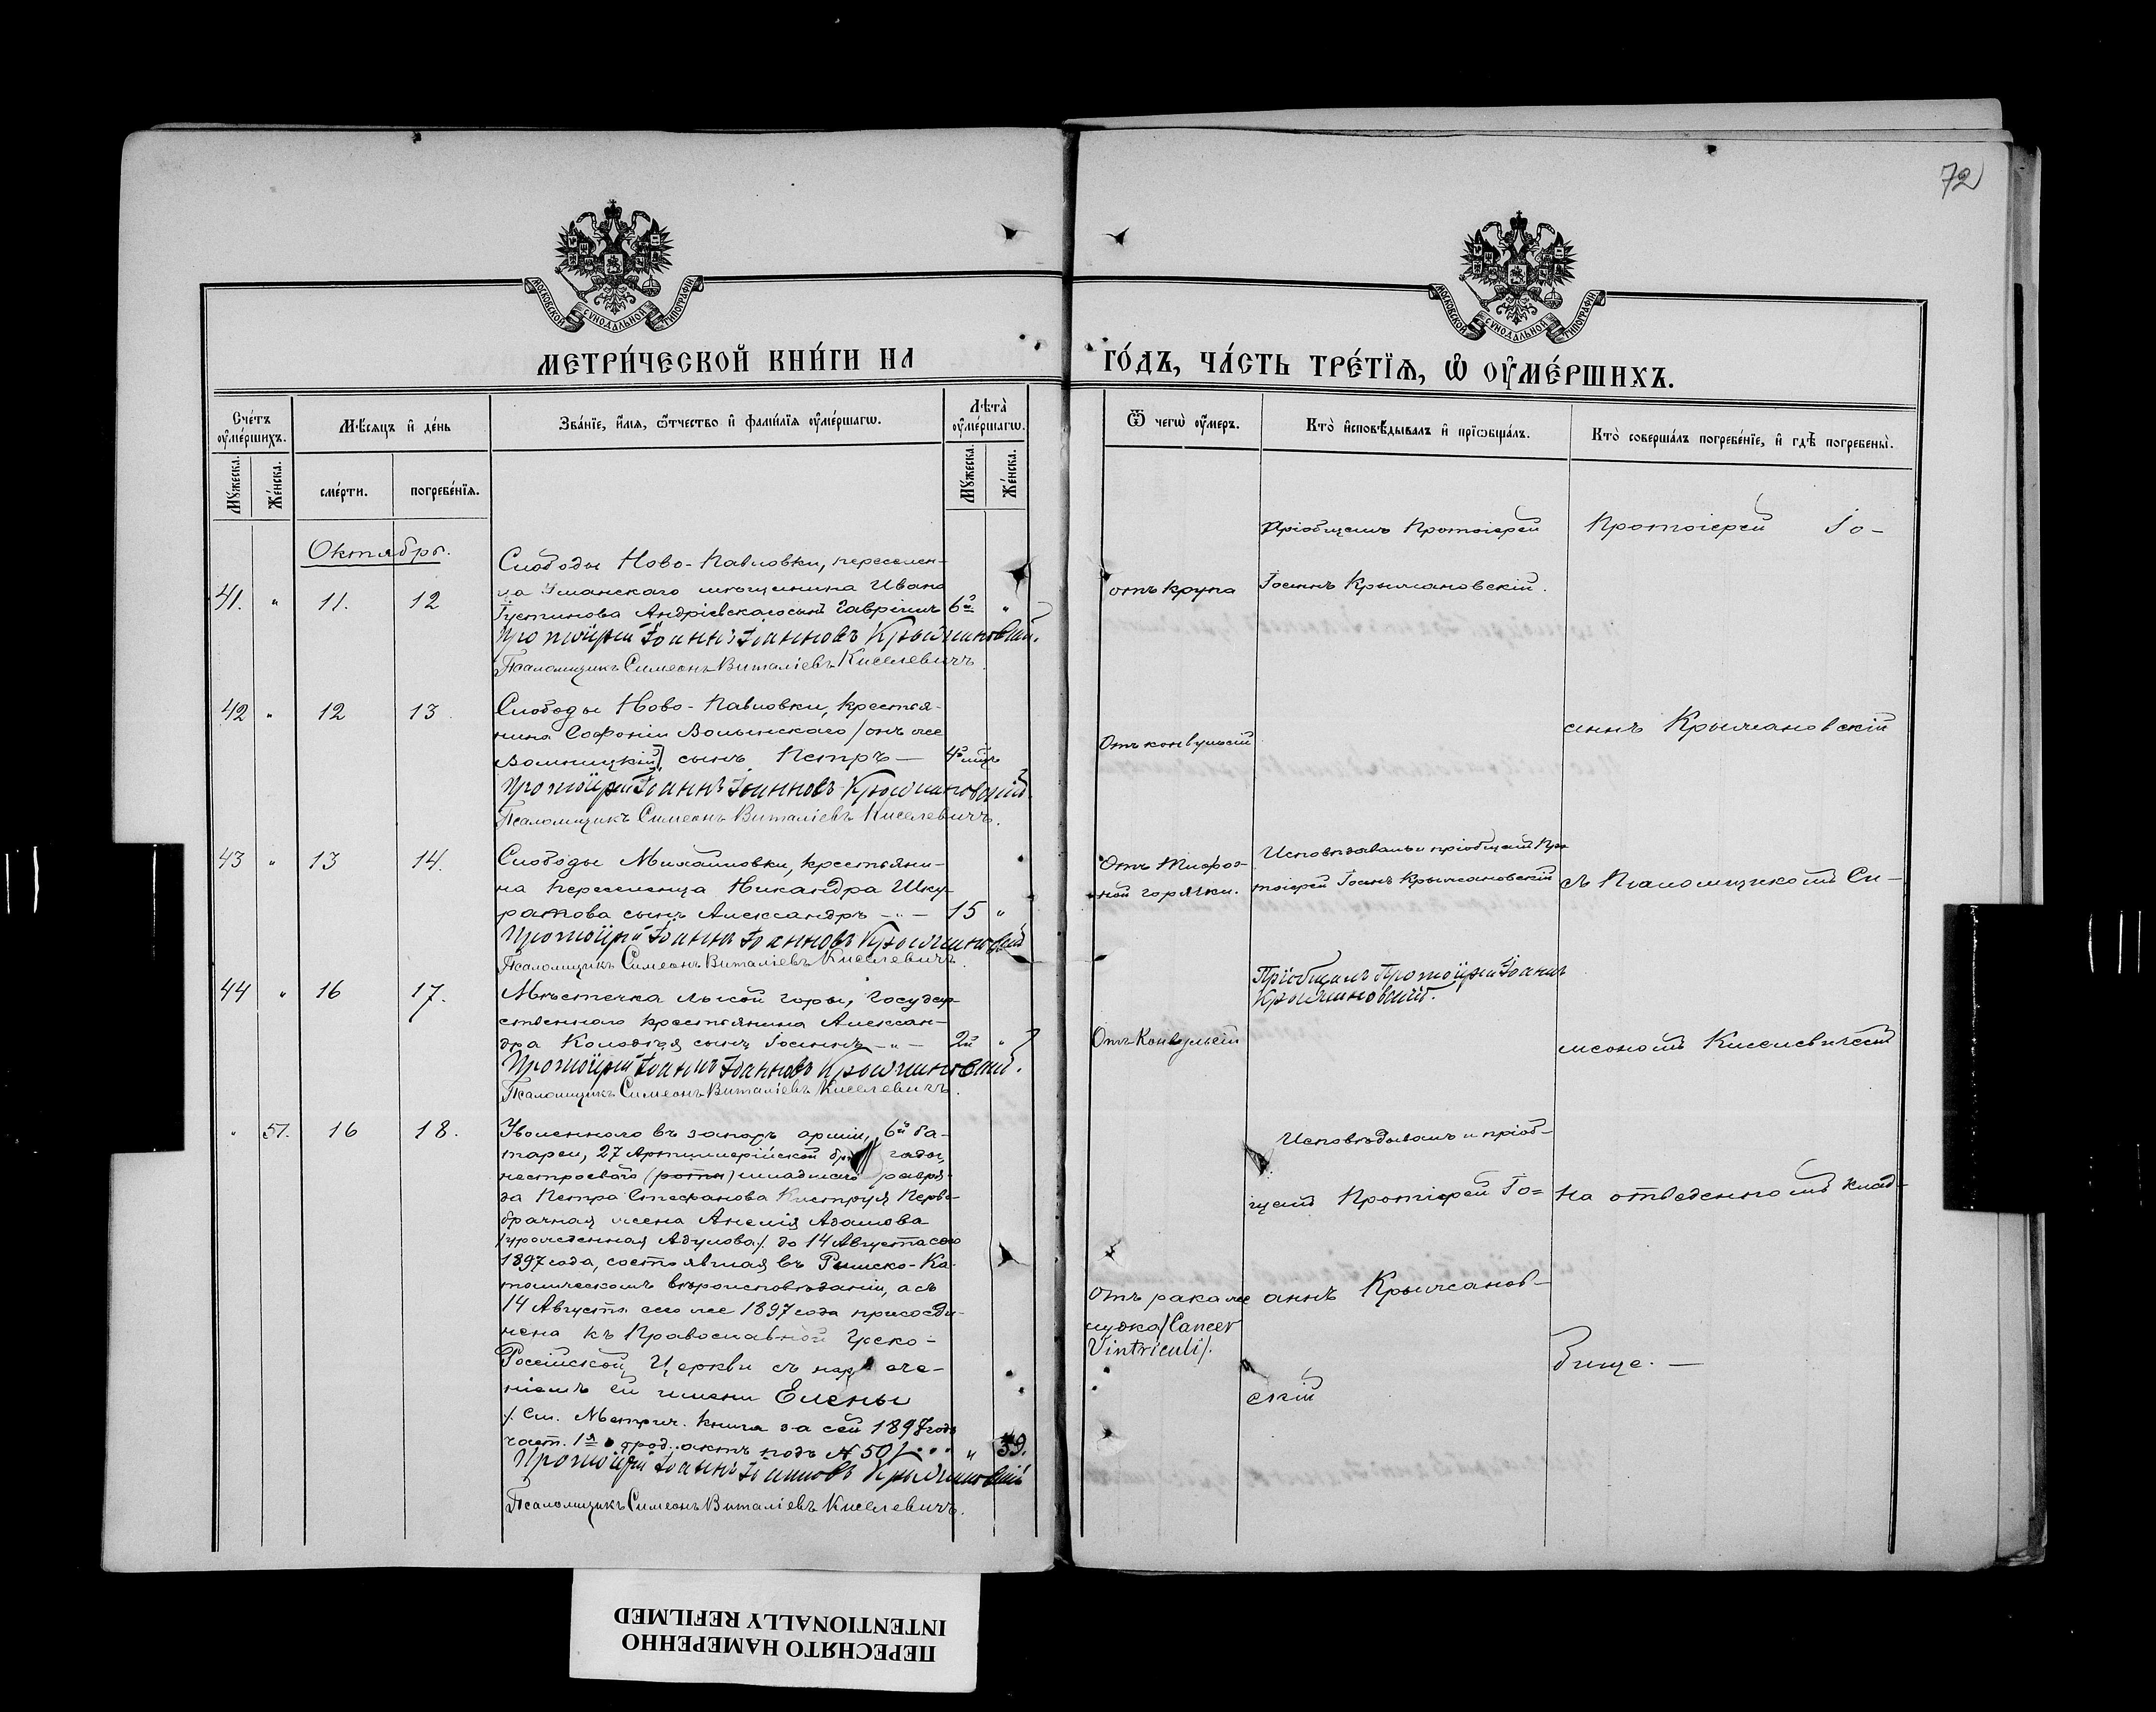 72
МОСКОВСКОЙ СѴНОДАЛЬНОЙ ТИПОГРАФІИ
МОСКОВСКОЙ СѴНОДАЛЬНОЙ ТИПОГРАФІИ
МЕТРИ́ЧЕСКОЙ КНИ́ГИ НА ГО́ДЪ, ЧА́СТЬ ТРЕ́ТЇѦ, Ѽ ОУ҆МЕ́РШИХЪ.
Сче́тъ оу҆ме́ршихъ.
Мѣ́сяцъ и҆ де́нь
Зва́нїе, и҆́мѧ, ѻ҆́тчество и҆ фами́лїѧ оу҆ме́ршагѡ.
Лѣта̀ оу҆ме́ршагѡ.
Ѿ чегѡ̀ оу҆́меръ.
Кто̀ и҆сповѣ́дывалъ и҆ прїѡбща́лъ.
Кто̀ соверша́лъ погребе́нїе, и҆ гдѣ̀ погребены̀.
Мꙋ́жеска.
Же́нска.
сме́рти.
погребе́нїѧ.
Мꙋ́жеска.
Же́нска.
Октябрь.
41. " 11. 12
Слободы Ново-Павловки, переселен-
ца Уманскаго мѣщанина Ивана
Іустинова Андріевскаго сынъ Гавріилъ 6 "
Протоіерей Іоаннъ Іоанновъ Крыжановскій.
Псаломщикъ Симеонъ Виталіевъ Киселевичъ.
отъ крупа
Пріобщалъ Протоіерей
Іоаннъ Крыжановскій.
Протоіерей Іо-
42 " 12 13
Слободы Ново-Павловки, крестья-
нина Софонія Волынскаго /онъ же
сынъ Петръ —
Протоіерей Іоаннъ Іоанновъ Крыжановскій.
Псаломщикъ Симеонъ Виталіевъ Киселевичъ.
Отъ конвульсій
аннъ Крыжановскій
43 " 13 14.
Слободы Михайловки, крестьяни-
на переселенца Никандра Шку-
ратова сынъ Александръ — " — 15 "
Протоіерей Іоаннъ Іоанновъ Крыжановскій
Псаломщикъ Симеонъ Виталіевъ Киселевичъ.
Отъ Тифоз-
ной горячки.
Исповѣдывалъ и пріобщалъ Про-
тоіерей Іоаннъ Крыжановскій
съ Псаломщикомъ Си-
44 " 16 17.
Мѣстечка Лысой горы, Государ-
ственнаго крестьянина Алексан-
дра Колодѣя сынъ Іоаннъ — " — "
Протоіерей Іоаннъ Іоанновъ Крыжановскій.
Псаломщикъ Симеонъ Виталіевъ Киселевичъ.
Отъ Конвульсій
Пріобщалъ Протоіерей Іоаннъ
Крыжановскій.
меономъ Киселевичемъ
" 57. 16 18.
Уволеннаго въ запасъ арміи, 6й ба-
тареи, 27 Артиллерійской бригады,
нестроеваго (роты) младшаго разря-
да Петра Стефанова Перво-
брачная жена Анелія Адамова
/урожденная Адулова/. до 14 Августа сего
1897 года, состоявшая въ Римско-Ка-
толическомъ вѣроисповѣданіи, а съ
14 Августа сего же 1897 года присоеди-
нена къ Православной Греко-
Россійской Церкви съ нарече-
ніемъ ей имени Елены
/. См. Метрич. Книга за сей 1897 годъ
част. 1я о род. актъ подъ № 50/. " 39.
Протоіерей Іоаннъ Іоанновъ Крыжановскій
Псаломщикъ Симеонъ Виталіевъ Киселевичъ.
Отъ рака же
лудка /Cancer
Vintriculi/.
Исповѣдывалъ и пріоб-
щалъ Протоіерей Іо=
аннъ Крыжанов-
скій
На отведенномъ клад-
бище. —
ПЕРЕСНЯТО НАМЕРЕННО
INTENTIONALLY REFILMED